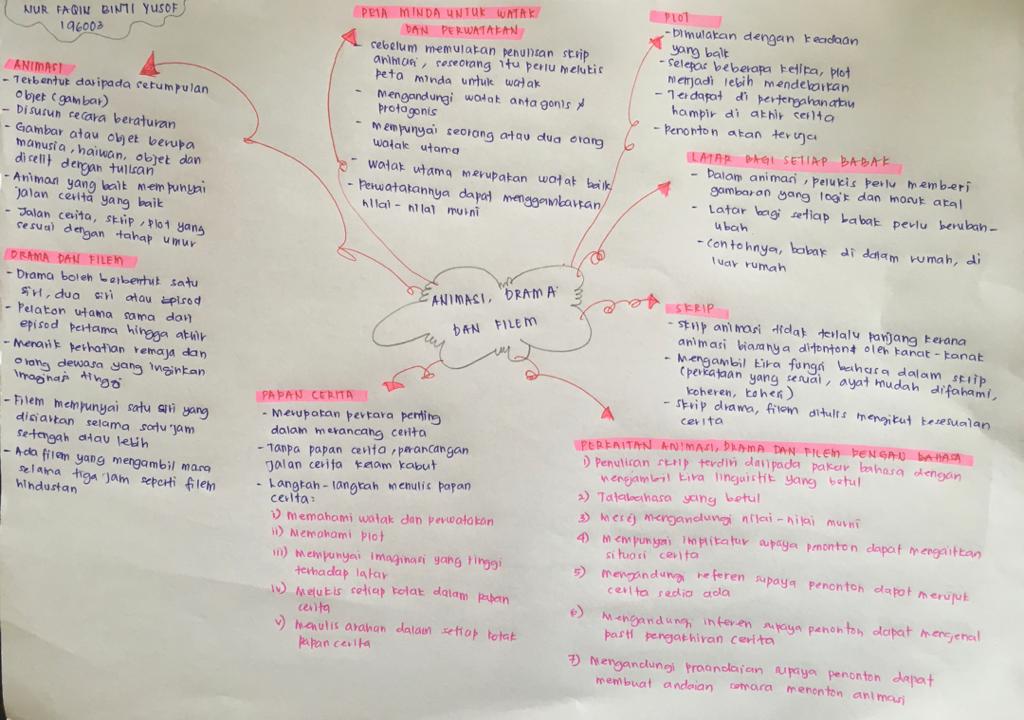 NUR FAQIN BINTI YUSOF
196003
ANIMASI
- Terbentuk daripada sekumpulan
objek (gambar)
- Disusun secara beraturan
- Gambar atau objek berupa
manusia, haiwan, objek dan
diselit dengan tulisan
- Animasi yang baik mempunyai
jalan cerita yang baik
- Jalan cerita, skrip, plot yang
sesuai dengan tahap umur
DRAMA DAN FILEM
- Drama boleh berbentuk satu
siri, dua siri atau episod
- Pelakon utama sama dari
episod pertama hingga akhir
- Menarik perhatian remaja dan
orang dewasa yang inginkan
imaginasi tinggi
- Filem mempunyai satu siri yang
disiarkan selama satu jam
setengah atau lebih
- Ada filem yang mengambil masa
selama tiga jam seperti filem
hindustan
PETA MINDA UNTUK WATAK
DAN PERWATAKAN
- sebelum memulakan penulisan skrip
animasi, seseorang itu perlu melukis
peta minda untuk watak
- Mengandungi watak antagonis &
protagonis
- mempunyai seorang atau dua orang
watak utama
- Watak utama merupakan watak baik
- Perwatakannya dapat menggambarkan
nilai-nilai murni
PLOT
- Dimulakan dengan keadaan
yang baik
- selepas beberapa ketika, plot
menjadi lebih mendebarkan
- Terdapat di pertengahan atau
hampir di akhir cerita
- Penonton akan teruja
LATAR BAGI SETIAP BABAK
- Dalam animasi, pelukis perlu memberi
gambaran yang logik dan masuk akal
- Latar bagi setiap babak perlu berubah-
ubah
- Contohnya, babak di dalam rumah, di
luar rumah
ANIMASI, DRAMA
DAN FILEM
SKRIP
- skrip animasi tidak terlalu panjang kerana
animasi biasanya ditonton oleh kanak-kanak
- Mengambil kira fungsi bahasa dalam skrip
(perkataan yang sesuai, ayat mudah difahami,
koheren, kohesi)
- skrip drama, filem ditulis mengikut kesesuaian
cerita
PAPAN CERITA
- Merupakan perkara penting
dalam merancang cerita
- Tanpa papan cerita, perancangan
jalan cerita kelam kabut
- Langkah-langkah menulis papan
cerita:
i) Memahami watak dan perwatakan
ii) Memahami plot
iii) Mempunyai imaginasi yang tinggi
terhadap latar
iv) Melukis setiap kotak dalam papan
cerita
v) Menulis arahan dalam setiap kotak
papan cerita
PERKAITAN ANIMASI, DRAMA DAN FILEM DENGAN BAHASA
1) Penulisan skrip terdiri daripada pakar bahasa dengan
mengambil kira linguistik yang betul
2) Tatabahasa yang betul
3) Mesej mengandungi nilai-nilai murni
4) Mempunyai implikatur supaya penonton dapat mengaitkan
situasi cerita
5) Mengandungi referen supaya penonton dapat merujuk
cerita sedia ada
6) Mengandungi inferen supaya penonton dapat mengenal
pasti pengakhiran cerita
7) Mengandungi praandaian supaya penonton dapat
membuat andaian semasa menonton animasi